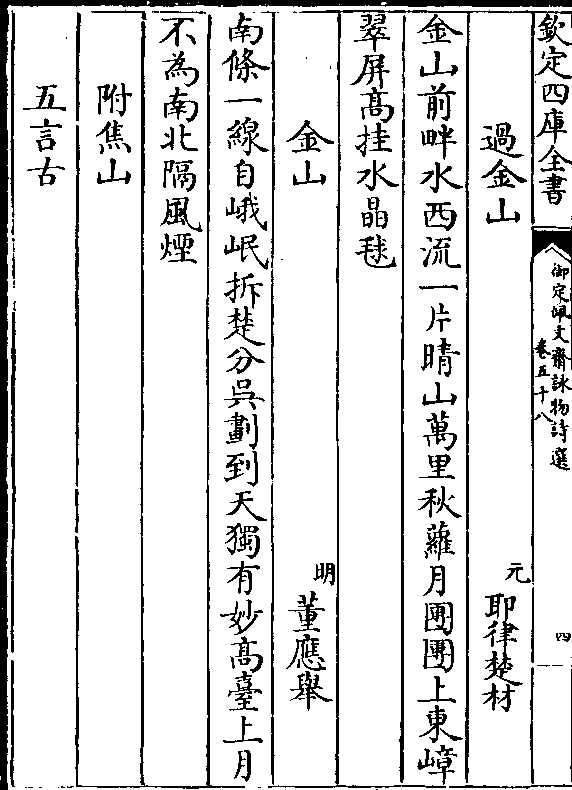 欽定四庫全書
御定佩文齋詠物詩選
卷五十八
四
過金山
元
耶律楚材
金山前畔水西流一片晴山萬里秋蘿月團團上東嶂
翠屏高挂水晶毬
金山
明
董應舉
南條一線自峨岷拆楚分吳劃到天獨有妙高臺上月
不為南北隔風煙
附焦山
五言古